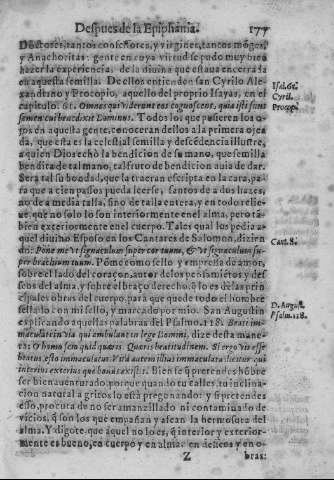 Despues de la Epiphania. 177
Doctores, tantos confessores, y virgines, tantos mõges,
y Anachoritas: gente en cuya virtud se pudo muy bien
hazer la experiencia, de la divina que estava encerrada
en aquesta semilla. De ellos entienden san Cyrilo Ale-
xandrino y Procopio, aquello del proprio Isayas, en el
capitulo. 61. Omnes qui viderunt eos cognoscent, quia isti sunt
semen cui benedixit Dominus. Todos los que pusieren los o-
jos en aquesta gente, conoceran dellos a la primera ojea
da, que esta es la celestial semilla y descẽdencia illustre,
a quien Dios echò la bendicion de su mano, que semilla
bendita de tal mano, tal fruto de bendicion auia de dar.
Sera tal su bondad, que la traeran escripta en la cara, pa-
ra que a cien passos pueda leerse, santos de a dos hazes,
no de a media talla, sino de talla entera, y en todo relie-
ue, que no solo lo son interiormente en el alma, pero tã-
bien exteriormente en el cuerpo. Tales qual los pedia a-
quel diuino Esposo en los Cantares de Salomon, dizien
do: Pone me vt signaculum super cor tuum, & vt signaculum su-
per brachium tuum. Põme como sello y empresa de amor,
sobre el lado del coraçon, autor de los pensamiẽtos y de-
seos del alma, y sobre el braço derecho, q̃ lo es de las prin
cipales obras del cuerpo, para que quede todo el hombre
sellado con mi sello, y marcado por mio. San Augustin
explicando aquellas palabras del Psalmo. 118. Beati im-
maculati in via qui ambulant in lege Domini, dize desta mane-
ra: O homo scio quid quæris. Quæris beatitudinem. Si ergo vis esse
beatus, esto immaculatus.
interius exterius Bien se q̃ pretendes hõbre
ser bienauenturado, porque quando tu calles, tu inclina-
cion natural a gritos lo està pregonando: y si pretendes
esso, procura de no ser amanzillado ni contaminado de
vicios, q̃ son los que empañan y afean la hermosura del
alma. Y digote, que aquel no lo es, q̃ interior y exterior-
mente es bueno, en cuerpo y en alma, en desseos y en o-
Z bras:
Isai. 61.
Cyril.
Procop.
Cant. 8.
D. August.
Psalm. 118.